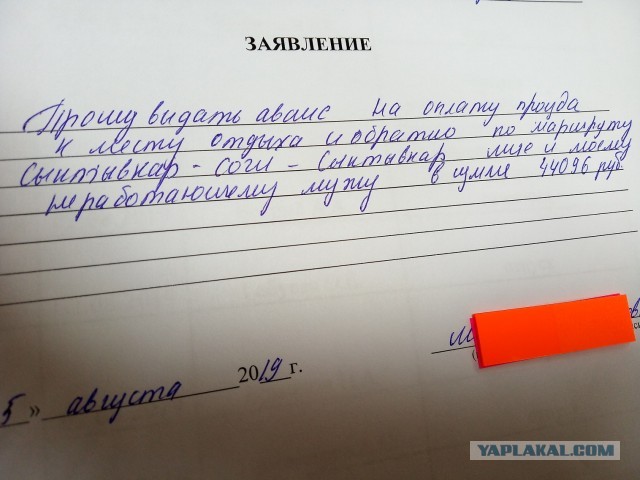 ЗАЯВЛЕНИЕ
Прошу видать аванс на оплату проезда
к месту отдыха и обратно по маршруту
Сыктывкар - СОЧИ - Сыктывкар мне и моему
неработающему мужу в сумме 44096 руб
5» августа 2019 г.
YAPLAKAL.COM